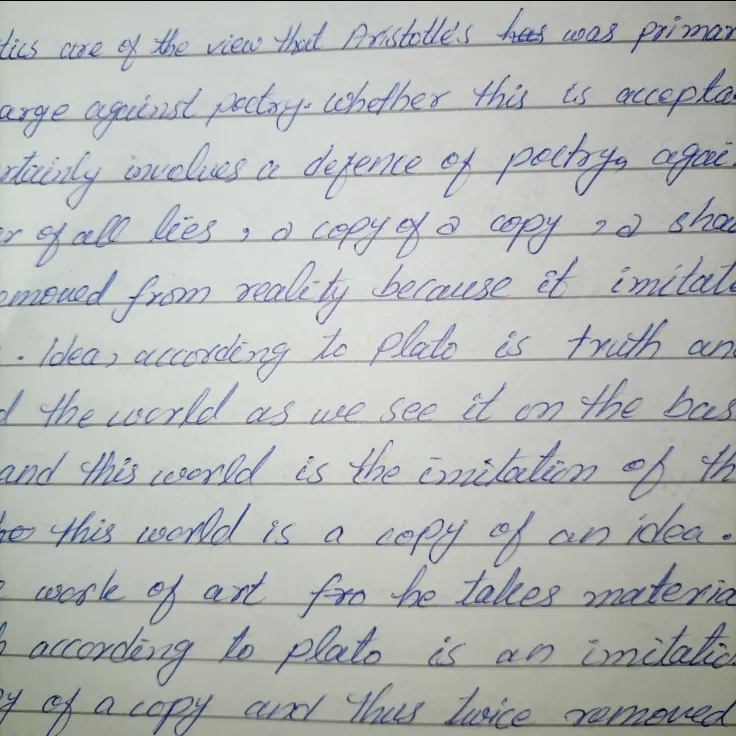 tics are of the view that Aristotle's has was primar
arge against poetry. whether this is accepta
rtainly involves a defence of poetry, agai
er of all lies, a copy of a copy, a sha
emoved from reality because it imitate
. Idea, according to Plato is truth an
d the world as we see it on the bas
and this world is the imitation of th
this world is a copy of an idea.
work of art fro he takes materia
h according to plato is an imitatio
py of a copy and thus twice removed